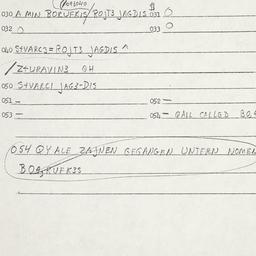 030 A MIN BORUFKIS/ROJT3 JAGDIS 031 O
032 O 033 O
040 StVARC3=ROJT3 JAGDIS ^
/ZHURAVIN3 OH
050 StVARCI JAG3-DIS
051 — 052 —
053 — 054 — QALL CALLED
054 QYALE ZAJNEN GEGANGEN UNTERN NOMEN
BORUFK3S